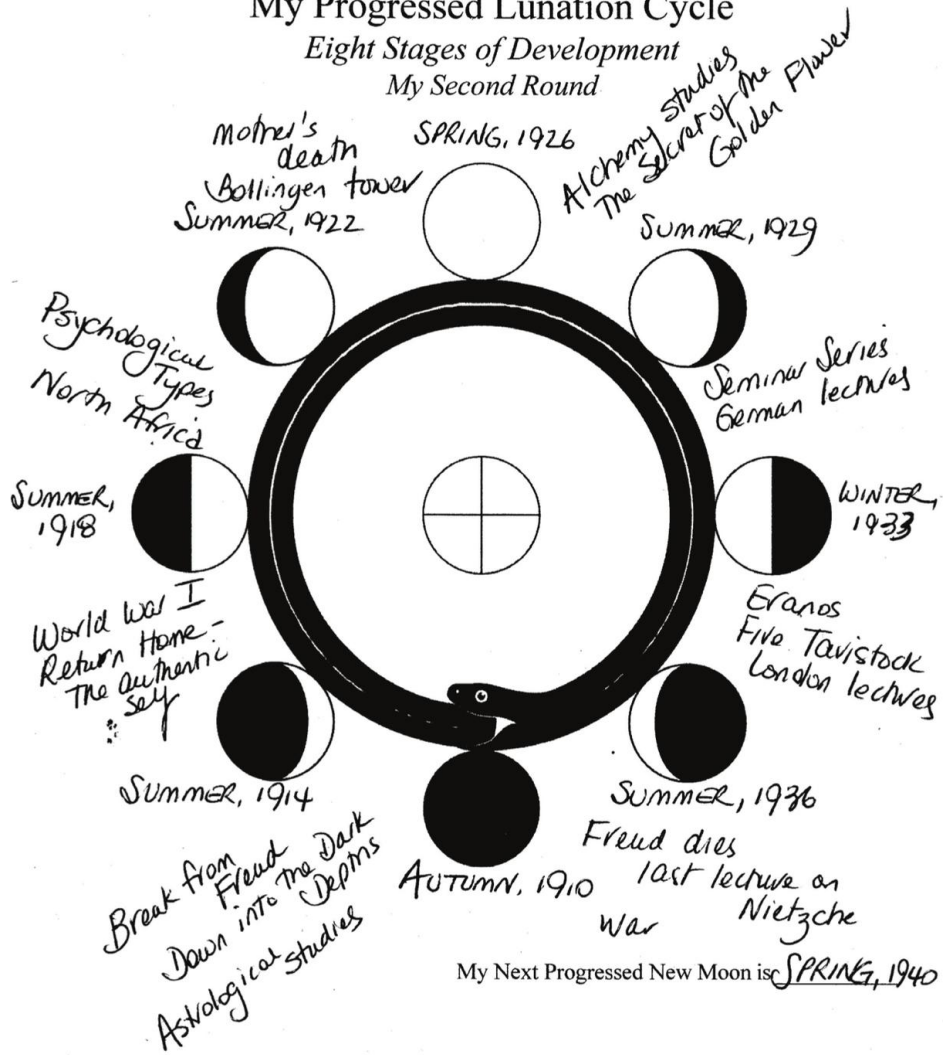 My Progressed Lunation Cycle
Eight Stages of Development
My Second Round
SPRING, 1926
Alchemy studies
The Secret of the
Golden Flower
SUMMER, 1929
Seminar Series
German lectures
WINTER,
1933
Eranos
Five Tavistock
London lectures
SUMMER, 1936
Freud dies
last lecture on
Nietzche
War
AUTUMN, 1910
Break from
Freud
Down into the Dark
Depths
Astrological studies
SUMMER, 1914
World War I
Return Home -
The authentic
self
SUMMER,
1918
Psychological
Types
North Africa
Mother's
death
Bollingen tower
SUMMER, 1922
My Next Progressed New Moon is SPRING, 1940